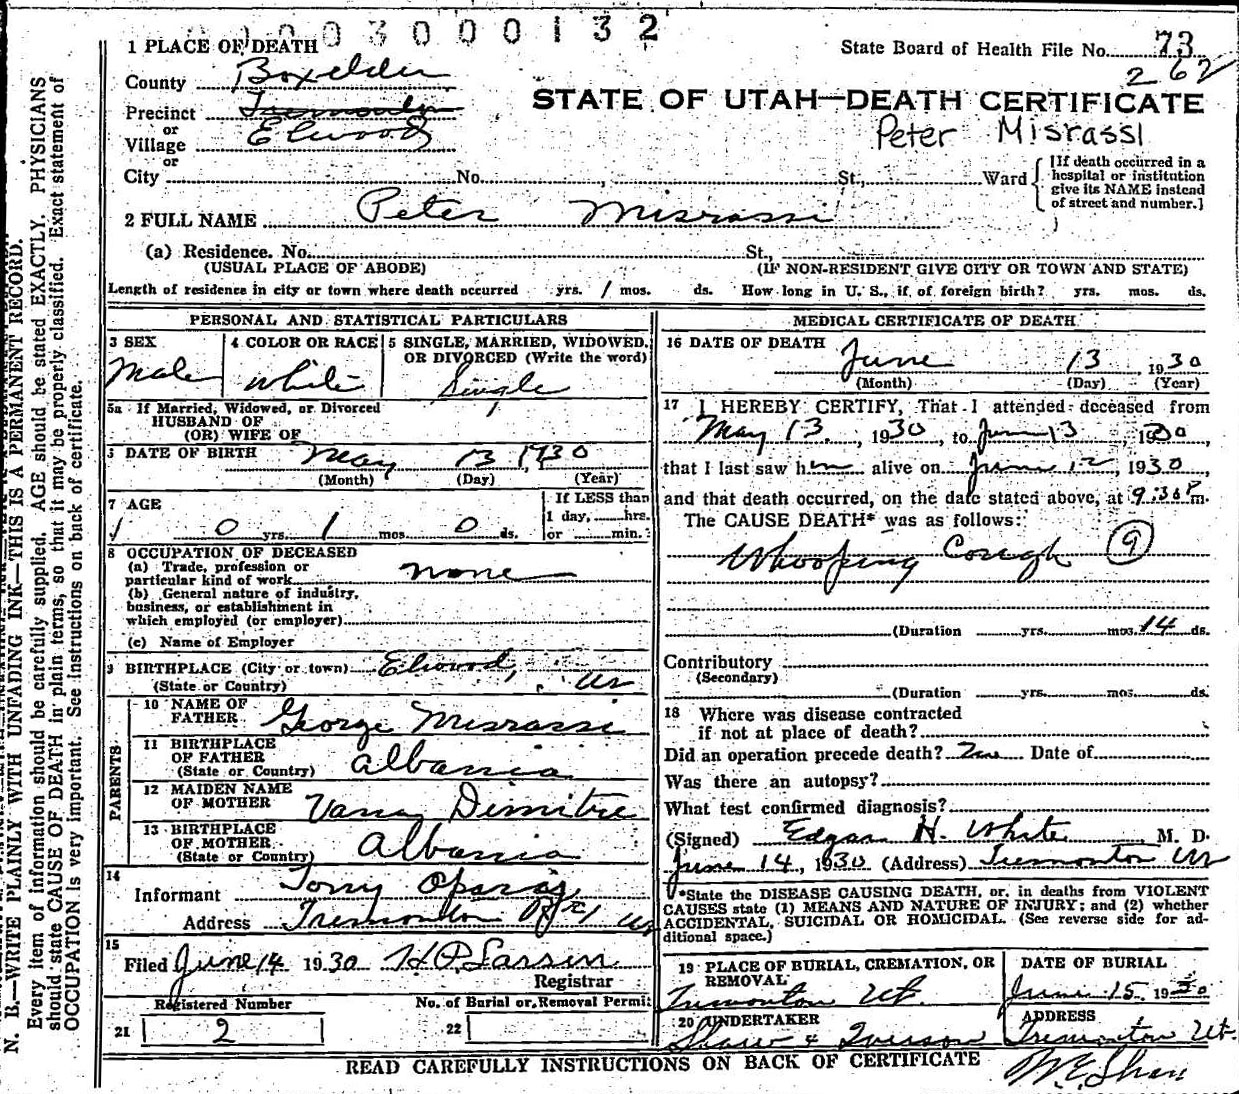 0003000132
1 PLACE OF DEATH
State Board of Health File No. 73
262
County Boxelder
STATE OF UTAH—DEATH CERTIFICATE
Precinct Tremonton
Peter Misrassi
or
Village Elwood
or
City No. , St., Ward
[If death occurred in a
hospital or institution
give its NAME instead
of street and number.]
2 FULL NAME Peter Misrassi
(a) Residence. No. St.,
(USUAL PLACE OF ABODE) (IF NON-RESIDENT GIVE CITY OR TOWN AND STATE)
Length of residence in city or town where death occurred yrs. 1 mos. ds. How long in U. S., if of foreign birth? yrs. mos. ds.
PERSONAL AND STATISTICAL PARTICULARS
3 SEX 4 COLOR OR RACE 5 SINGLE, MARRIED, WIDOWED,
OR DIVORCED (Write the word)
Male White Single
5a If Married, Widowed, or Divorced
HUSBAND OF
(OR) WIFE OF
6 DATE OF BIRTH May 13 1930
(Month) (Day) (Year)
7 AGE
If LESS than
1 day, hrs.
or min.
0 yrs. 1 mos. 0 ds.
8 OCCUPATION OF DECEASED
(a) Trade, profession or
particular kind of work none
(b) General nature of industry,
business, or establishment in
which employed (or employer)
(c) Name of Employer
9 BIRTHPLACE (City or town) Elwood,
(State or Country) Ut
PARENTS
10 NAME OF
FATHER George Misrassi
11 BIRTHPLACE
OF FATHER
(State or Country) Albania
12 MAIDEN NAME
OF MOTHER Dimitre
13 BIRTHPLACE
OF MOTHER
(State or Country) Albania
14
Informant Tony
Address Tremonton Ut
15
Filed June 14 1930 H.P. Larsen
Registrar
Registered Number No. of Burial or Removal Permit
21 2 22
MEDICAL CERTIFICATE OF DEATH
16 DATE OF DEATH
June 13, 1930
(Month) (Day) (Year)
17 I HEREBY CERTIFY, That I attended deceased from
May 13, 1930, to June 13, 1930
that I last saw him alive on June 12, 1930,
and that death occurred, on the date stated above, at 9:30 P m.
The CAUSE DEATH* was as follows:
Whooping Cough 9
(Duration yrs. mos. 14 ds.
Contributory
(Secondary)
(Duration yrs. mos. ds.
18 Where was disease contracted
if not at place of death?
Did an operation precede death? Date of
Was there an autopsy?
What test confirmed diagnosis?
(Signed) Edgar H. White M. D.
June 14, 1930 (Address) Tremonton Ut
*State the DISEASE CAUSING DEATH, or, in deaths from VIOLENT
CAUSES state (1) MEANS AND NATURE OF INJURY; and (2) whether
ACCIDENTAL, SUICIDAL OR HOMICIDAL. (See reverse side for ad-
ditional space.)
19 PLACE OF BURIAL, CREMATION, OR
REMOVAL
Tremonton Ut.
DATE OF BURIAL
June 15 1930
20 UNDERTAKER
Shaw & Iverson
ADDRESS
Tremonton Ut.
READ CAREFULLY INSTRUCTIONS ON BACK OF CERTIFICATE
N. B.—WRITE PLAINLY WITH UNFADING INK—THIS IS A PERMANENT RECORD.
Every item of information should be carefully supplied. AGE should be stated EXACTLY. PHYSICIANS
should state CAUSE OF DEATH in plain terms, so that it may be properly classified. Exact statement of
OCCUPATION is very important. See instructions on back of certificate.